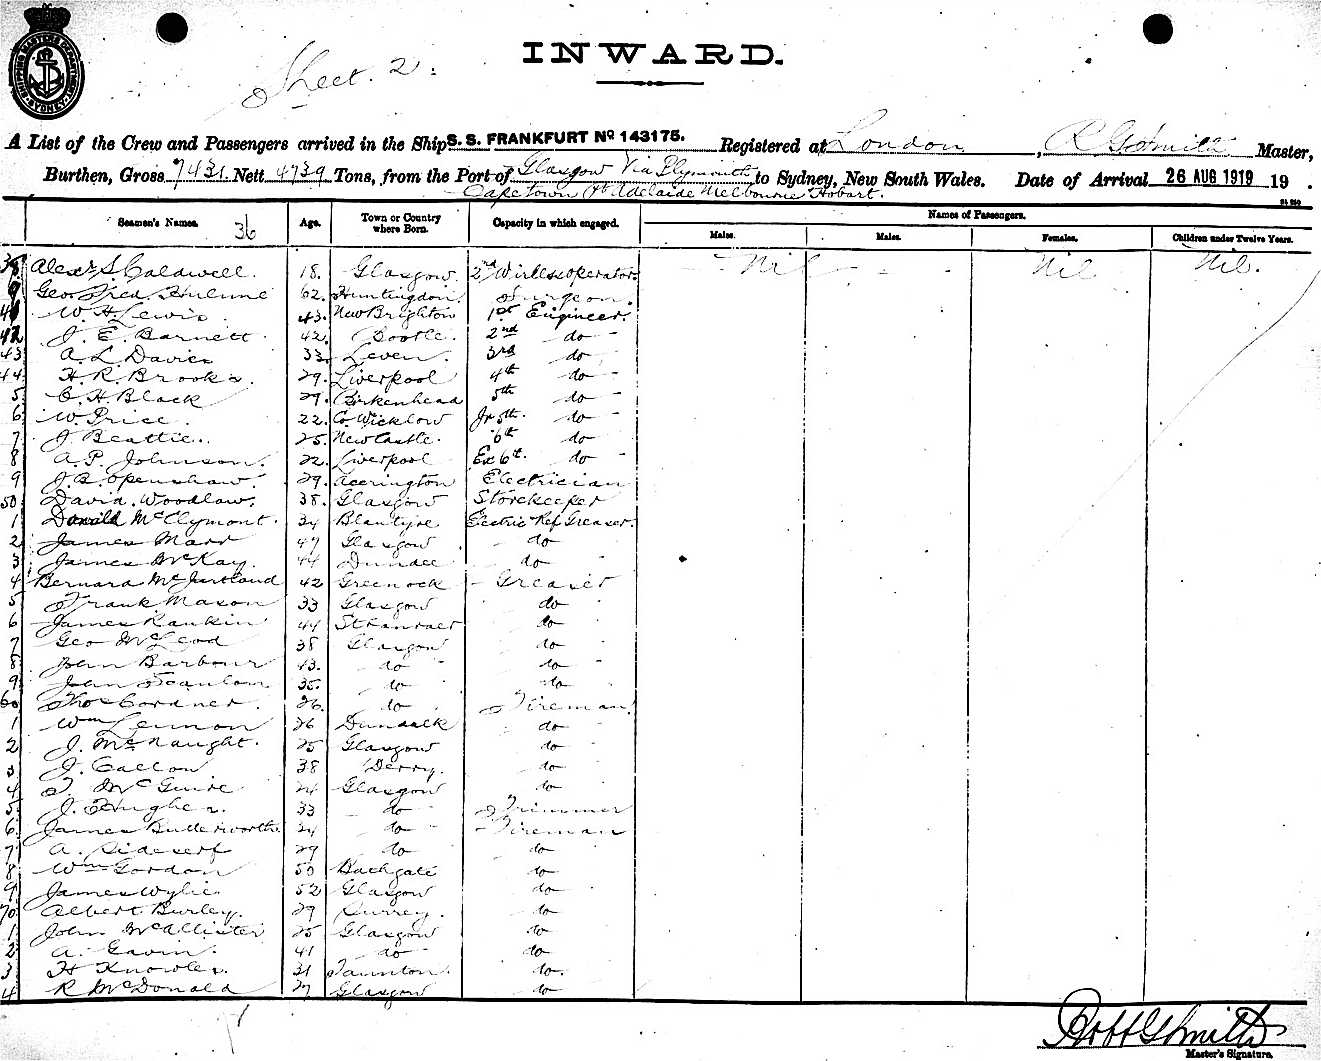 SHIPPING MASTERS DEPARTMENT SYDNEY
Sheet. 2.
INWARD.
A List of the Crew and Passengers arrived in the Ship S.S. FRANKFURT No 143175. Registered at London, R G Smith Master,
Burthen, Gross 7431. Nett 4739 Tons, from the Port of Glasgow Via Plymouth to Sydney, New South Wales. Date of Arrival 26 AUG 1919 19 .
Cape Town Pt Adelaide Melbourne Hobart.
Seamen's Names. 36 Age. Town or Country where Born. Capacity in which engaged. Names of Passengers.
Males. Males. Females. Children under Twelve Years.
Alexr S. Caldwell. 18. Glasgow. 2nd Wireless operator. Nil Nil Nil.
9 Geo Fred Hulme 62. Huntingdon Surgeon.
W. H. Lewis. 43. New Brighton 1st Engineer.
42 J. E. Barnett. 42. Bootle. 2nd do
43 A. L. Davies 33. Leven. 3rd do
44 H. R. Brooks. 29. Liverpool 4th do
5 C. H. Black 29. Birkenhead 5th do
6 W. Price. 22. Co. Wicklow Jr 5th. do
7 J. Beattie. 25. Newcastle. 6th do
8 A. P. Johnson. 22. Liverpool Ex 6th. do
9 J. B. Openshaw. 29. Accrington Electrician
50 David. Woodlaw. 38. Glasgow Storekeeper
1 Donald McClymont. 34 Blantyre Electric Ref Greaser.
2 James Marr 47 Glasgow do
3 James McKay. 44 Dundee do
4 Bernard McPartland 42 Greenock Greaser
5 Frank Mason 33 Glasgow do
6 James Rankin 44 Stranraer do
7 Geo McLeod 38 Glasgow do
8 John Barbour 43. do do
9 John Scanlon 35. do do
60 Thos Gardner. 26. do Fireman.
1 Wm Lennon 26 Dundalk do
2 J. McNaught. 25 Glasgow do
3 J. Callow 38 Derry. do
4 T. McGuire 24 Glasgow do
5. J. Hughes. 33 do Trimmer
6. James Butterworth. 24 do Fireman
7 A. Sideserf 29 do do
8 Wm Gordon 50 Bathgate do
9 James Wylie 52 Glasgow do
70 Albert Burley. 29 Surrey. do
1 John McAllister 25 Glasgow do
2 A. Gavin. 41 do do
3 H Knowles. 31 Taunton. do.
4 R McDonald 27 Glasgow do
Robt G Smith
Master's Signature.